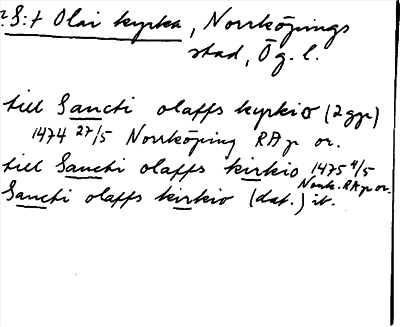 S:t Olai kyrka, Norrköpings
stad, Ög. l.
till Sancti olaffs kyrkio (2 ggr)
1474 27/5 Norrköping RAp or.
till Sancti olaffs kirkio 1475 4/5
Norrk. RAp or.
Sancti olaffs kirkio (dat.) ib.